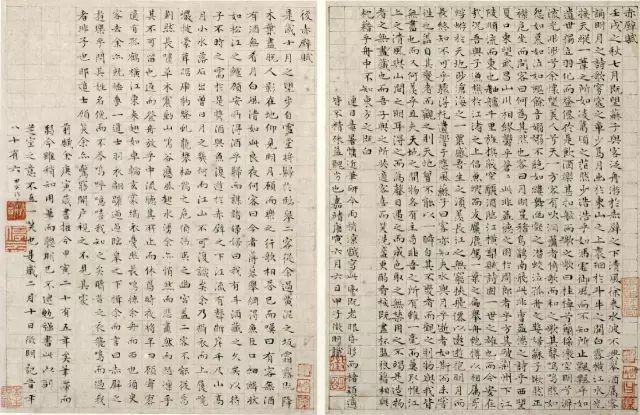 赤壁賦
壬戌之秋七月既望蘇子與客泛舟游於赤壁之下清風徐來水波不興舉酒屬客
誦明月之詩歌窈窕之章少焉月出於東山之上裴回斗牛之間白露橫江水光
接天縱一葦之所如凌萬頃之茫然浩浩乎如馮虛御風而不知所止飄飄乎如
遺世獨立羽化而登僊於是飲酒樂甚扣舷而歌之歌曰桂棹兮蘭槳擊空明兮泝
流光渺渺兮余懷望美人兮天一方客有吹洞簫者倚歌而和之其聲嗚嗚然如
怨如慕如泣如訴餘音嫋嫋不絕如縷舞幽壑之潛蛟泣孤舟之嫠婦蘇子愀然正
襟危坐而問客曰何為其然也客曰月明星稀烏鵲南飛此非曹孟德之詩乎西望
夏口東望武昌山川相繆鬱乎蒼蒼此非孟德之困於周郎者乎方其破荊州下江
陵順流而東也舳艫千里旌旗蔽空釃酒臨江橫槊賦詩固一世之雄也而今安在
哉況吾與子漁樵於江渚之上侶魚蝦而友麋鹿駕一葉之扁舟舉匏樽以相屬寄
蜉蝣於天地渺滄海之一粟哀吾生之須臾羨長江之無窮挾飛僊以遨遊抱明月而
長終知不可乎驟得託遺響於悲風蘇子曰客亦知夫水與月乎逝者如斯而未嘗
往也盈虛者如彼而卒莫消長也蓋將自其變者而觀之則天地曾不能以一瞬自其不變者而觀之則物與我皆
無盡也而又何羨乎且夫天地之間物各有主苟非吾之所有雖一毫而莫取惟江
上之清風與山間之明月耳得之而為聲目遇之而成色取之無禁用之不竭是造物
者之無盡藏也而吾與子之所共適客喜而笑洗盞更酌肴核既盡杯盤狼藉相與
枕藉乎舟中不知東方之既白
嘉靖庚寅六月六日甲子徵明識
後赤壁賦
是歲十月之望步自雪堂將歸於臨皋二客從余過黃泥之坂霜露既降
木葉盡脫人影在地仰見明月顧而樂之行歌相答已而嘆曰有客無酒
有酒無肴月白風清如此良夜何客曰今者薄暮舉網得魚巨口細鱗狀
如松江之鱸顧安所得酒乎歸而謀諸婦婦曰我有斗酒藏之久矣以待
子不時之需於是攜酒與魚復游於赤壁之下江流有聲斷岸千尺山高
月小水落石出曾日月之幾何而江山不可復識矣余乃攝衣而上履巉
巖披蒙茸踞虎豹登虬龍攀栖鶻之危巢俯馮夷之幽宮蓋二客不能從焉
劃然長嘯草木震動山鳴谷應風起水涌余亦悄然而悲肅然而恐凜乎
其不可留也返而登舟放乎中流聽其所止而休焉時夜將半四顧寂寥
適有孤鶴橫江東來翅如車輪玄裳縞衣戛然長鳴掠余舟而西也須臾
客去余亦就睡夢一道士羽衣翩躚過臨皋之下揖余而言曰赤壁之
遊樂乎問其姓名俛而不答嗚呼噫嘻我知之矣疇昔之夜飛鳴而過我
者非子也耶道士顧笑余亦驚寤開戶視之不見其處
前賦余庚寅歲書抵今甲寅二十有五年矣
是歲二月十日徵明記時年
八十有六